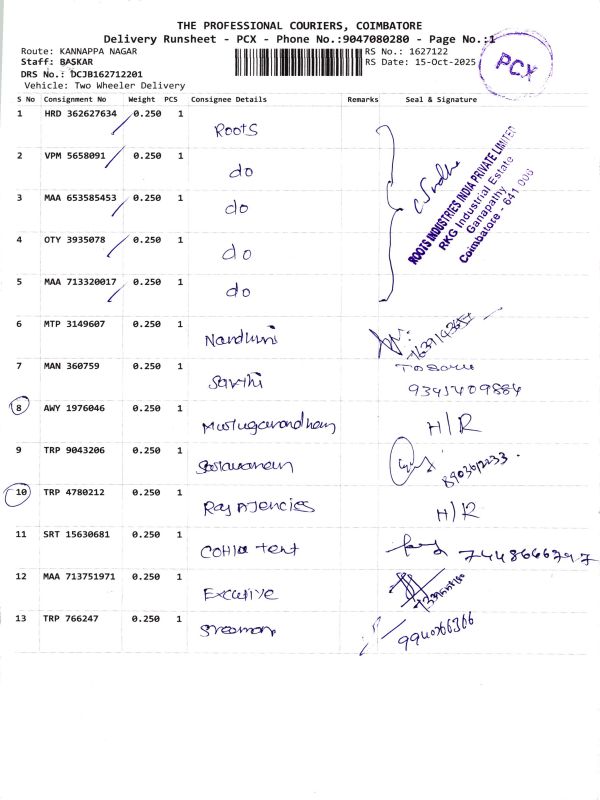 THE PROFESSIONAL COURIERS, COIMBATORE
Delivery Runsheet - PCX - Phone No.:9047080280 - Page No.:1
Route: KANNAPPA NAGAR
Staff: BASKAR
DRS No.: DCJB162712201
Vehicle: Two Wheeler Delivery
RS No.: 1627122
RS Date: 15-Oct-2025
PCX
S No Consignment No Weight PCS Consignee Details Remarks Seal & Signature
1 HRD 362627634 0.250 1 Roots
2 VPM 5658091 0.250 1 do
3 MAA 653585453 0.250 1 do
4 OTY 3935078 0.250 1 do
5 MAA 713320017 0.250 1 do
ROOTS INDUSTRIES INDIA PRIVATE LIMITED
RKG Industrial Estate
Ganapathy
Coimbatore - 641 006
6 MTP 3149607 0.250 1 Nandhini
7 MAN 360759 0.250 1 Sarthi
9341409884
8 AWY 1976046 0.250 1 H/R
9 TRP 9043206 0.250 1
10 TRP 4780212 0.250 1 Raj Agencies H/R
11 SRT 15630681 0.250 1 tent 7448666797
12 MAA 713751971 0.250 1 Excutive
13 TRP 766247 0.250 1